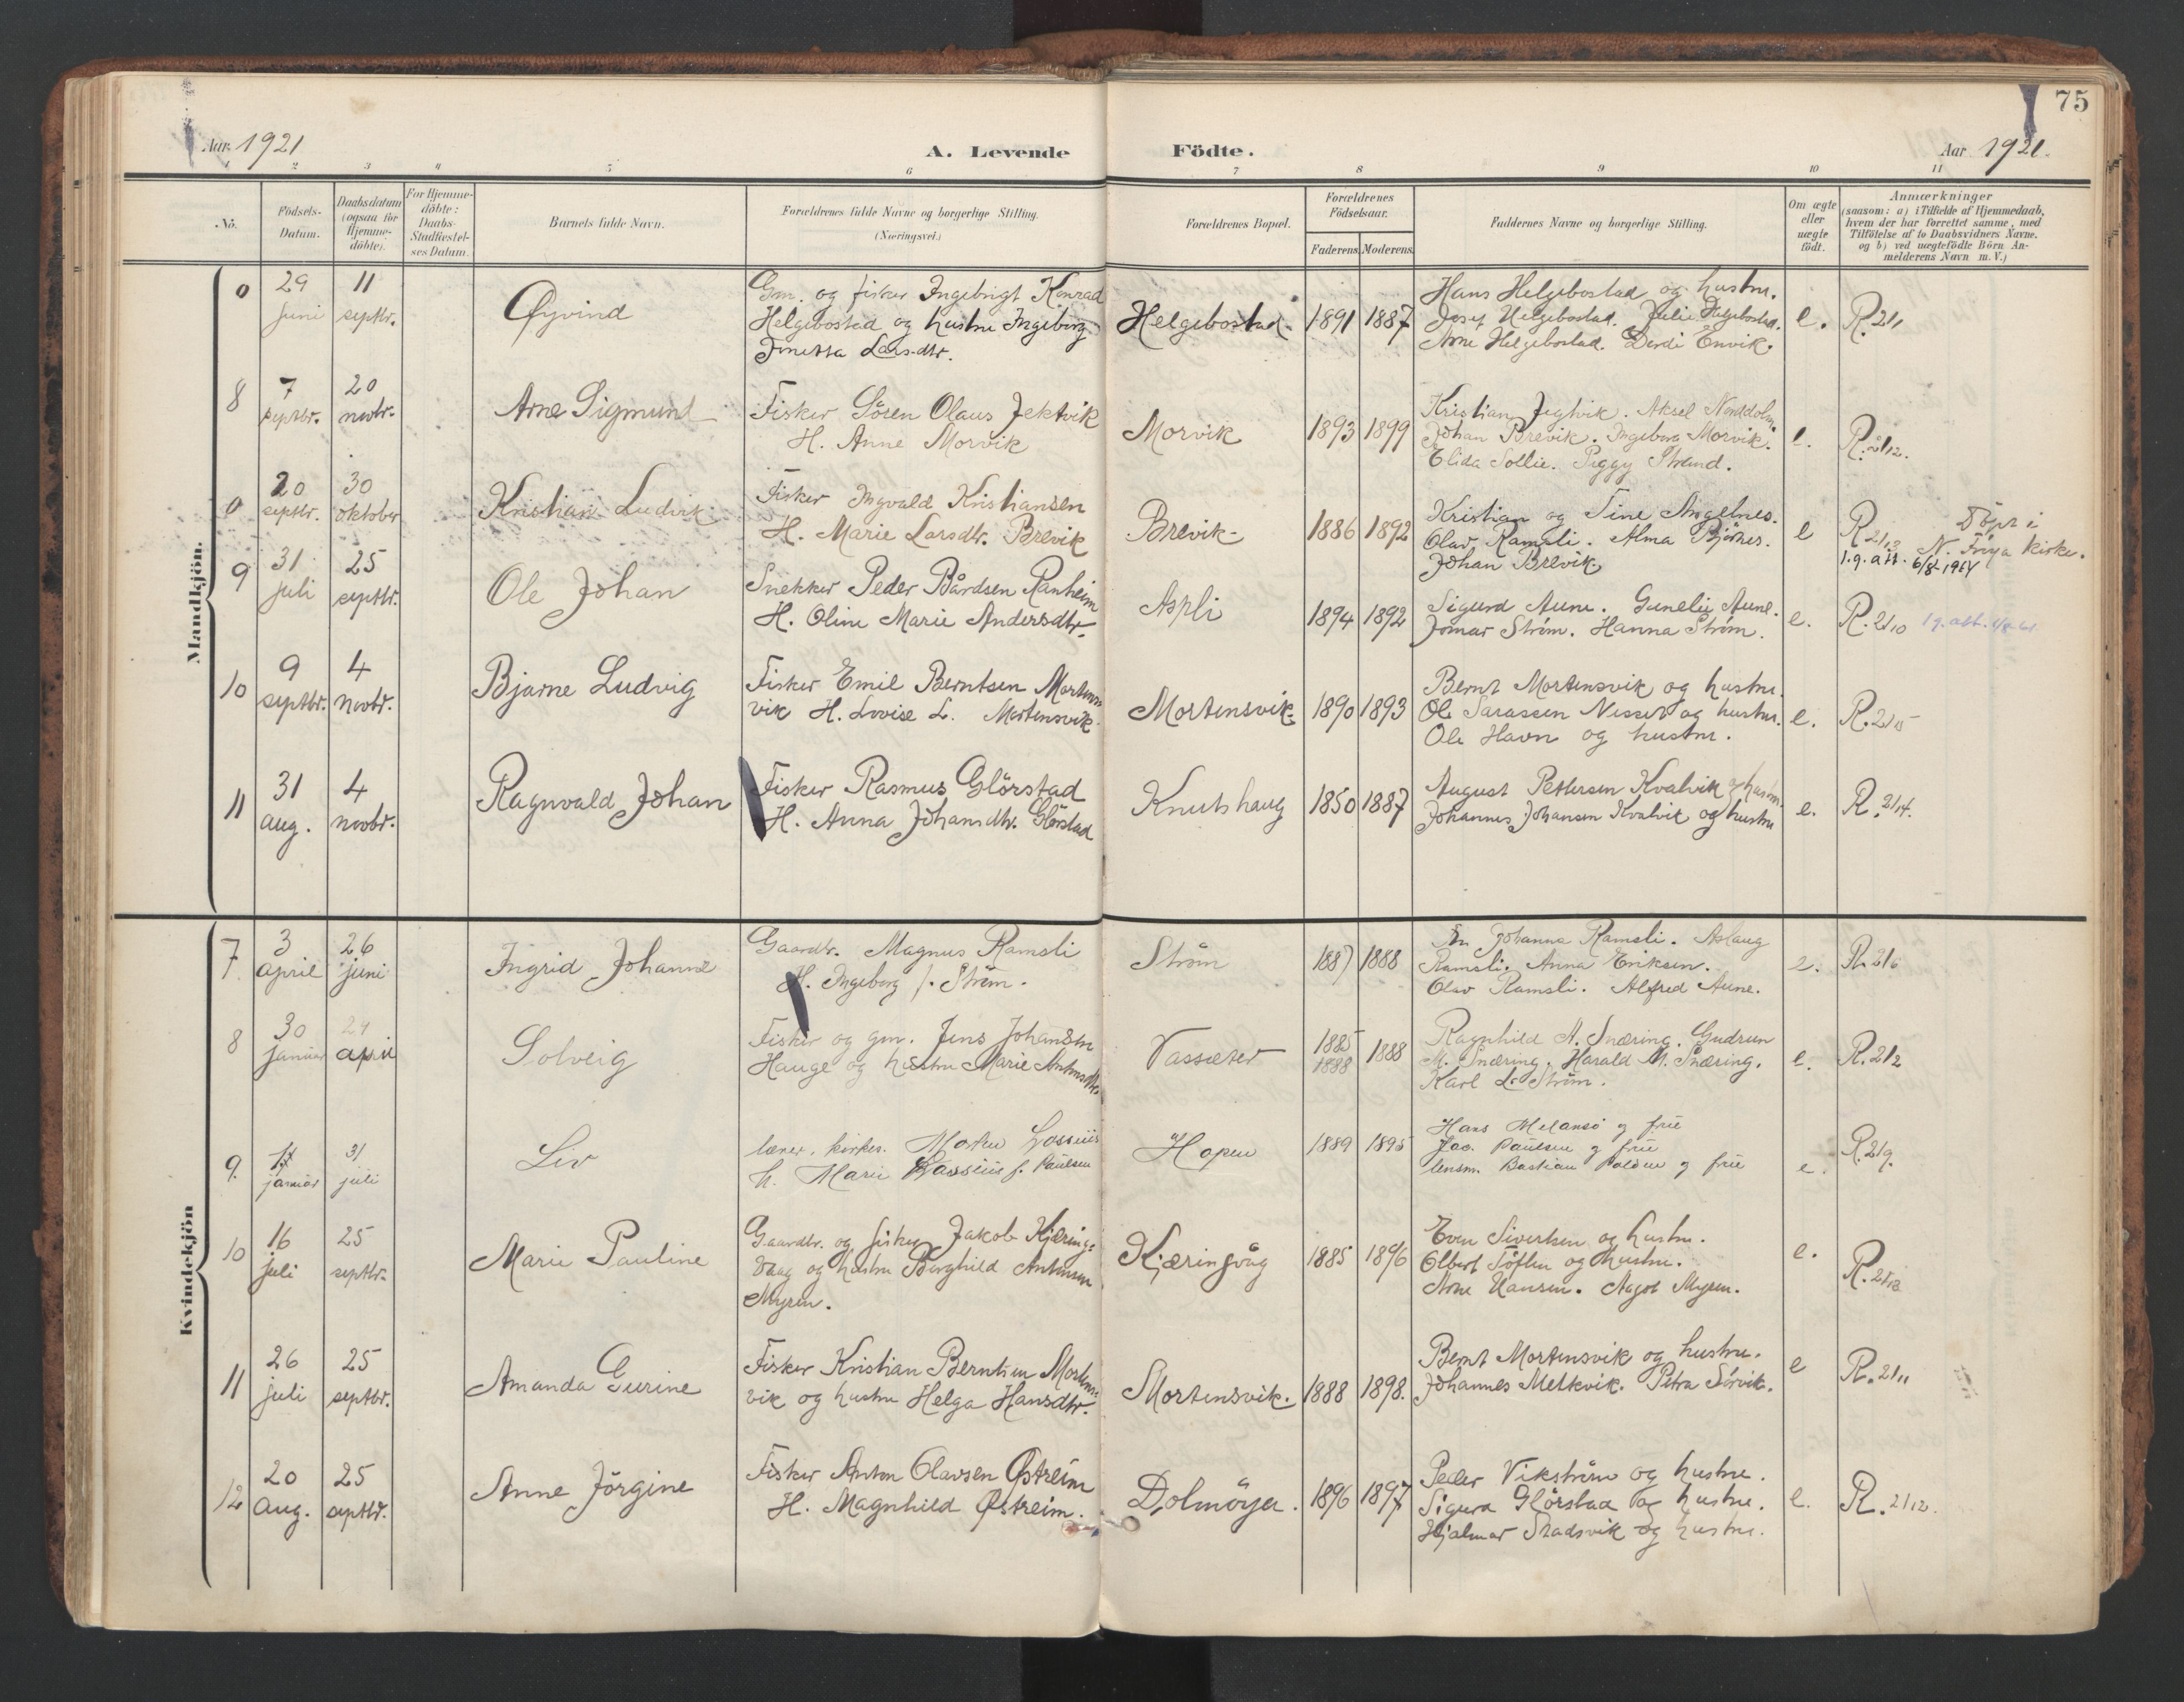 75
Aar 1921
A. Levende Födte.
Aar 1921.
1 2 3 4 5 6 7 8 9 10 11
No.
Födsels-
Datum.
Daabsdatum
(ogsaa for
Hjemme-
döbte).
For Hjemme-
döbte:
Daabs-
Stadfestel-
ses Datum.
Barnets fulde Navn.
Forældrenes fulde Navne og borgerlige Stilling.
(Næringsvei.)
Forældrenes Bopæl.
Forældrenes
Födselsaar.
Faderens Moderens
Faddernes Navne og borgerlige Stilling.
Om ægte
eller
uægte
födt.
Anmærkninger
(saasom: a) i Tilfælde af Hjemmedaab,
hvem der har forrettet samme, med
Tilföielse af to Daabsvidners Navne.
og b) ved uægtefödte Börn An-
melderens Navn m. V.)
Mandkjön.
0
29
juni
11
septbr.
Øyvind
Gm. og fisker Ingebrigt Konrad
Helgebostad og hustru Ingeborg
Larsdtr.
Helgebostad.
1891 1887
Hans Helgebostad og hustru.
Josef Helgebostad. Julie Helgebostad.
Arne Helgebostad. Envik.
e.
R. 21/1
8
7
septbr.
20
novbr.
Arne Sigmund
Fisker Sören Olaus Jektvik
H. Anne Morvik
Morvik
1893 1899
Kristian Jegtvik. Aksel
Johan Brevik. Ingeborg Morvik.
Elida Sollie. Peggy Strand.
e.
R. 21/12.
0
20
septbr.
30
oktober
Kristian Ludvik
Fisker Ingvald Kristiansen
H. Marie Larsdtr. Brevik
Brevik
1886 1892
Kristian og Tine
Olav Ramsli. Alma Björnes.
Johan Brevik
e
R 21/13 Döpt i
N. Fröya kirke.
1.g. att. 6/8-1964
9
31
juli
25
septbr.
Ole Johan
Snekker Peder Bårdsen Ranheim
H. Oline Marie Andersdtr.
Aspli
1894 1892
Sigurd Aune. Aune.
Jomar Ström. Hanna Ström.
e.
R. 21/10 1 g. att.
10
9
septbr.
4
novbr.
Bjarne Ludvig
Fisker Emil Berntsen Mortens
vik H. Lovise L. Mortensvik.
Mortensvik.
1890 1893
Bernt Mortensvik og hustru.
Ole Sarassen Nesset og hustru.
Ole Havn og hustru.
e.
R. 21/15
11
31
aug.
4
novbr.
Ragnvald Johan
Fisker Rasmus Glörstad
H. Anna Johansdtr. Glörstad
Knutshaug
1850 1887
August Pettersen Kvalvik og hustru.
Johannes Johansen Kvalvik og hustru
e.
R. 21/14.
Kvindekjön
7
3
april
26
juni
Ingrid Johanne
Gaardbr. Magnus Ramsli
H. Ingeborg f. Ström.
Ström
1887 1888
Johanna Ramsli. Aslaug
Ramsli. Anna Eriksen.
Olav Ramsli. Alfred Aune.
e.
R. 21/6
8
30
januar
24
april
Solveig
Fisker og gm. Jens Johansen
Hauge og hustru Marie
Vassæter
1885
1888
1888
Ragnhild A. Snæring. Gudrun
M. Snæring. Harald M. Snæring.
Karl L. Ström.
e.
R. 21/2
9.
januar
31
juli
Liv
lærer, kirkes. Morten Lossius
h. Marie Lossius f. Paulsen
Hopen
1889 1895
Hans Melansö og frue
Jac. Paulsen og frue
lensm. Bastian og frue
e.
R. 21/9.
10
16
juli
25
septbr.
Marie Pauline
Gaardbr. og fisker Jakob Kjærings
vaag og hustru Borghild Antonsen
Myren.
Kjæringvåg
1885 1896
Even Sivertsen og hustru.
Elbert Töften og hustru.
Arne Hansen. Aagot Myren.
e.
R. 21/13
11
26
juli
25
septbr.
Amanda Gurine
Fisker Kristian Berntsen Mortens
vik og hustru Helga Hansdtr.
Mortensvik.
1888 1898.
Bernt Mortensvik og hustru.
Johannes Melkvik. Petra Sörvik.
e
R. 21/11
12
20
aug.
25
septbr.
Anne Jörgine
Fisker Anton Olavsen Østreim
H. Magnhild Østreim.
Dolmöya.
1896 1897
Peder Vikström og hustru.
Sigurd Glörstad og hustru.
Hjalmar Stadsvik og hustru.
e.
R. 21/12.